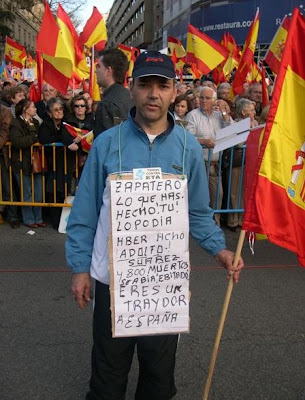 www.restaura.com
CONTRA
ETA
ZAPATERO
LO QUE HAS-
HECHO! TU!
LOPODIA
HBER HCHO
ADOLFO!
SUAREZ
Y 800 MUERTOS
SE ABIA! EBITADO
ERES UN
TRAYDOR
A ESPAÑA